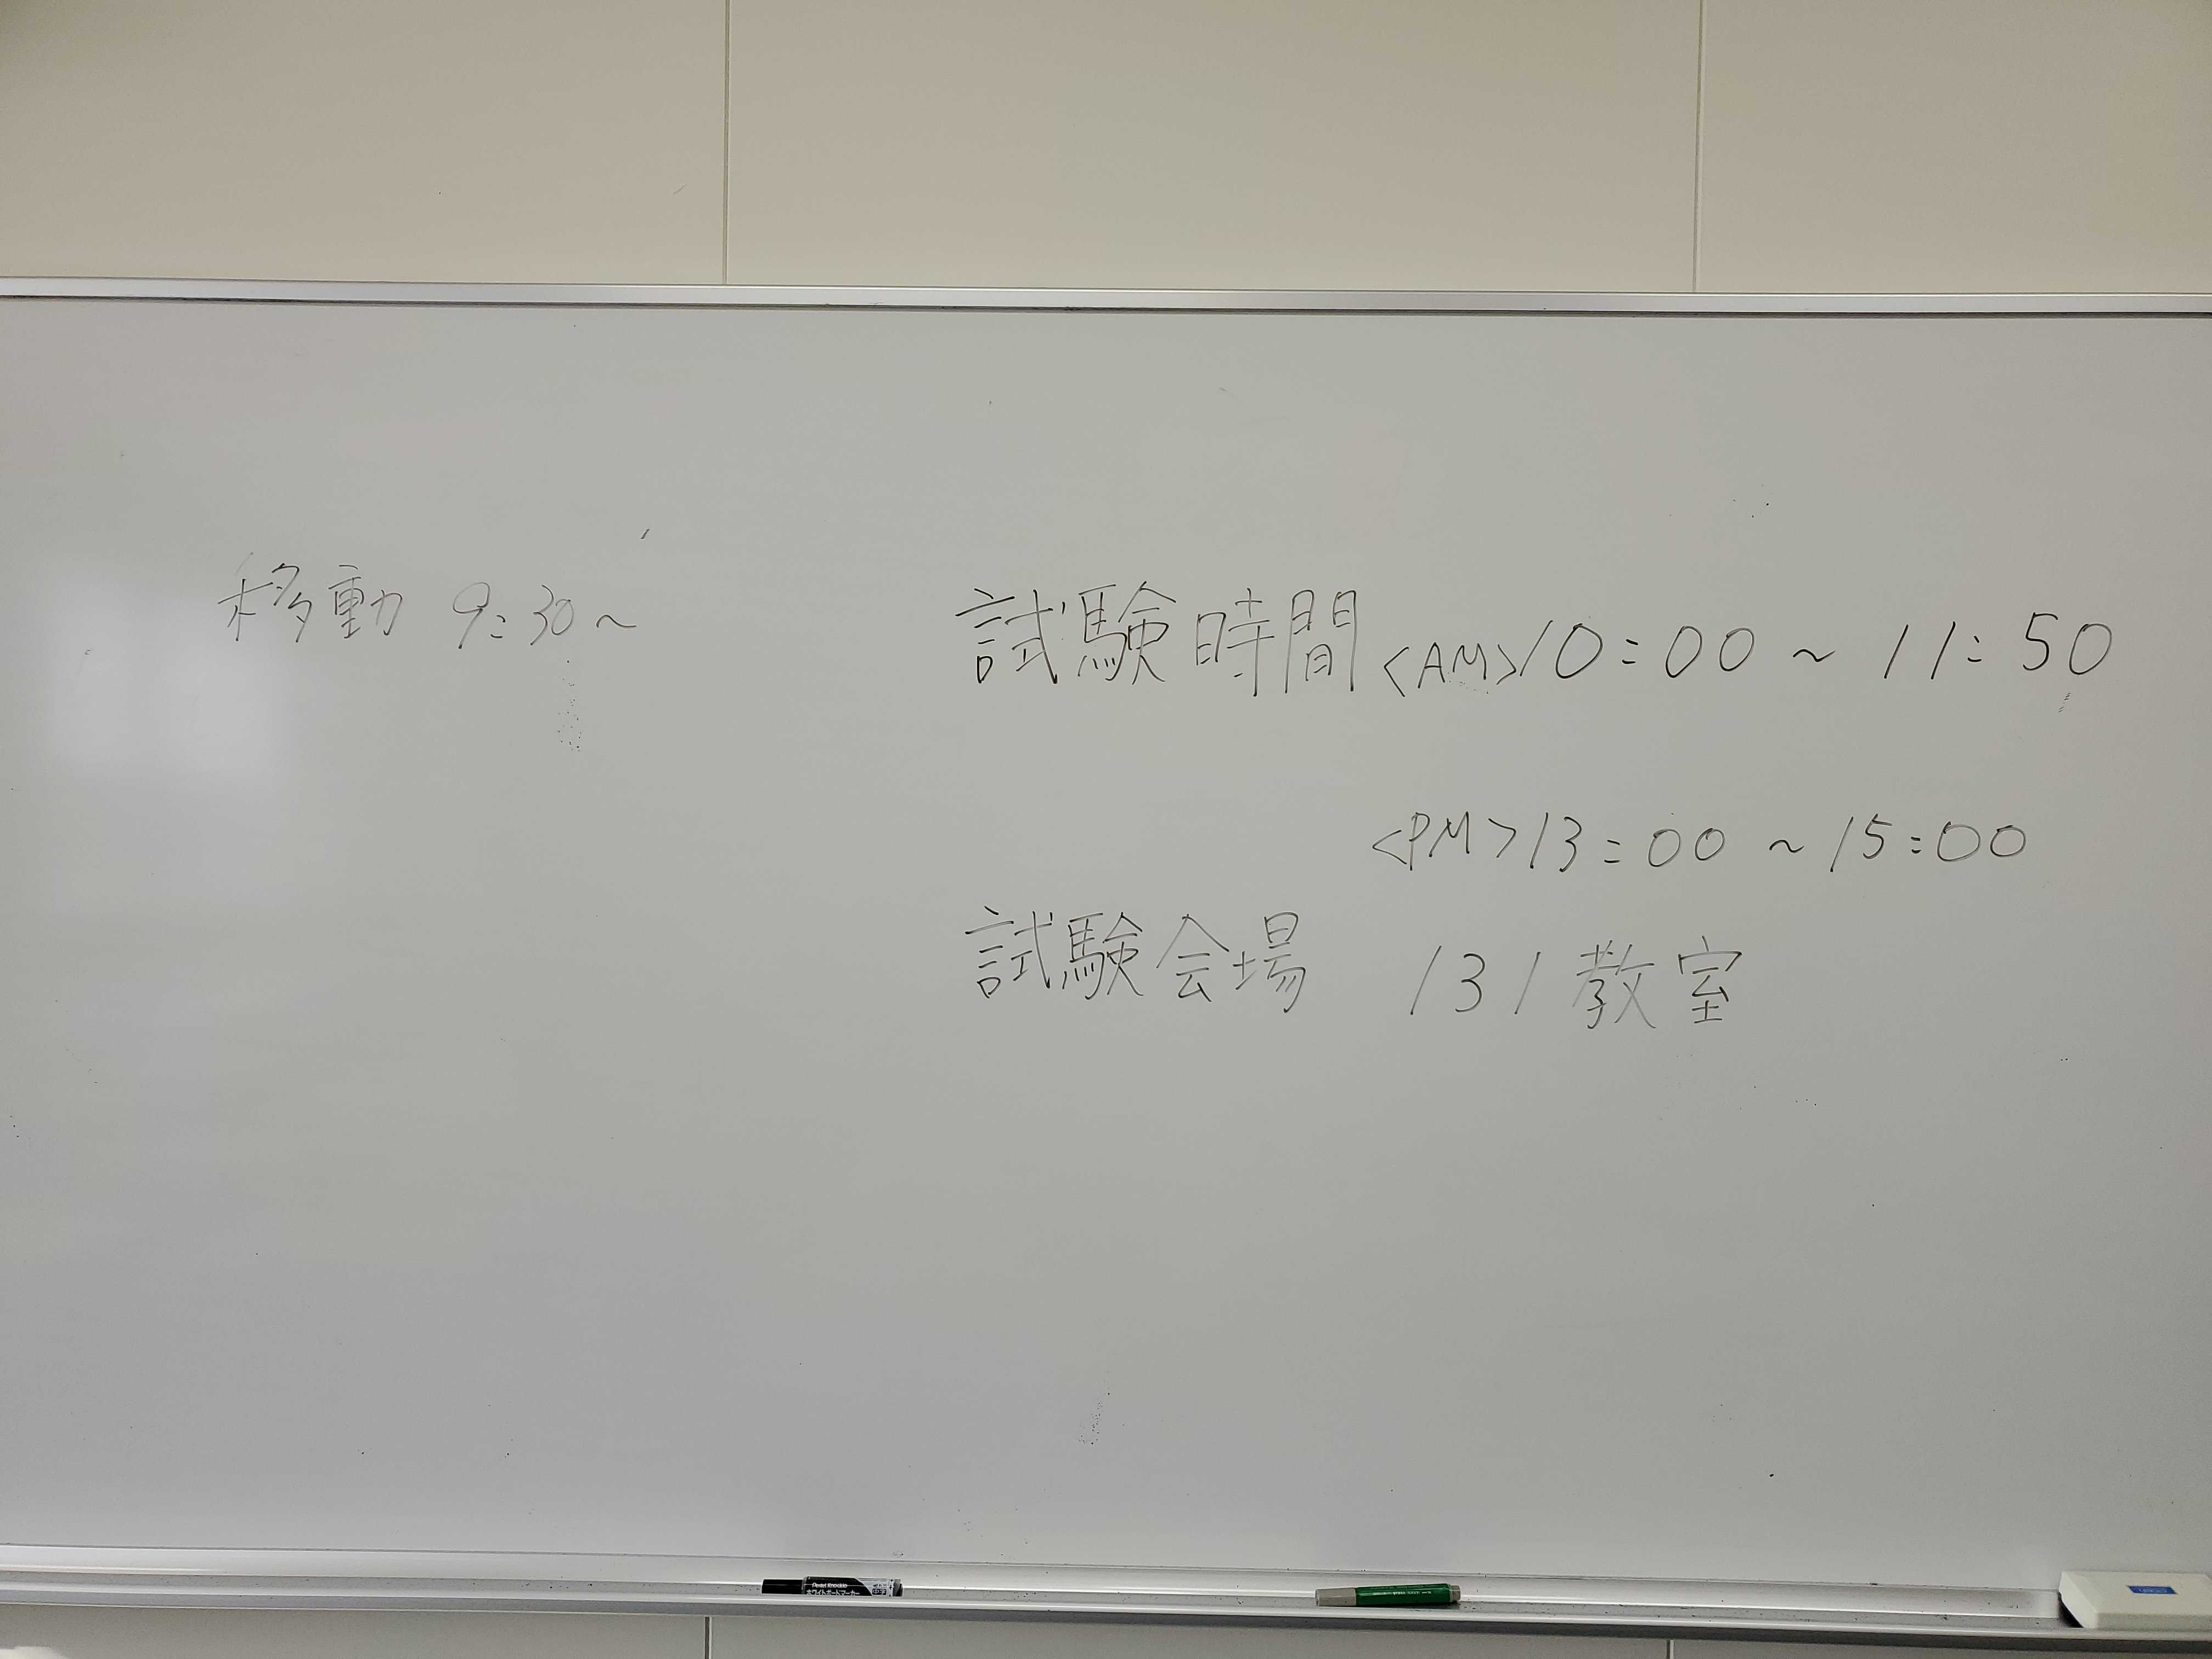 移動 9:30~
試験時間<AM>10:00~11:50
<PM>13:00~15:00
試験会場 131教室
Pentel Knockle
ホワイトボードマーカー